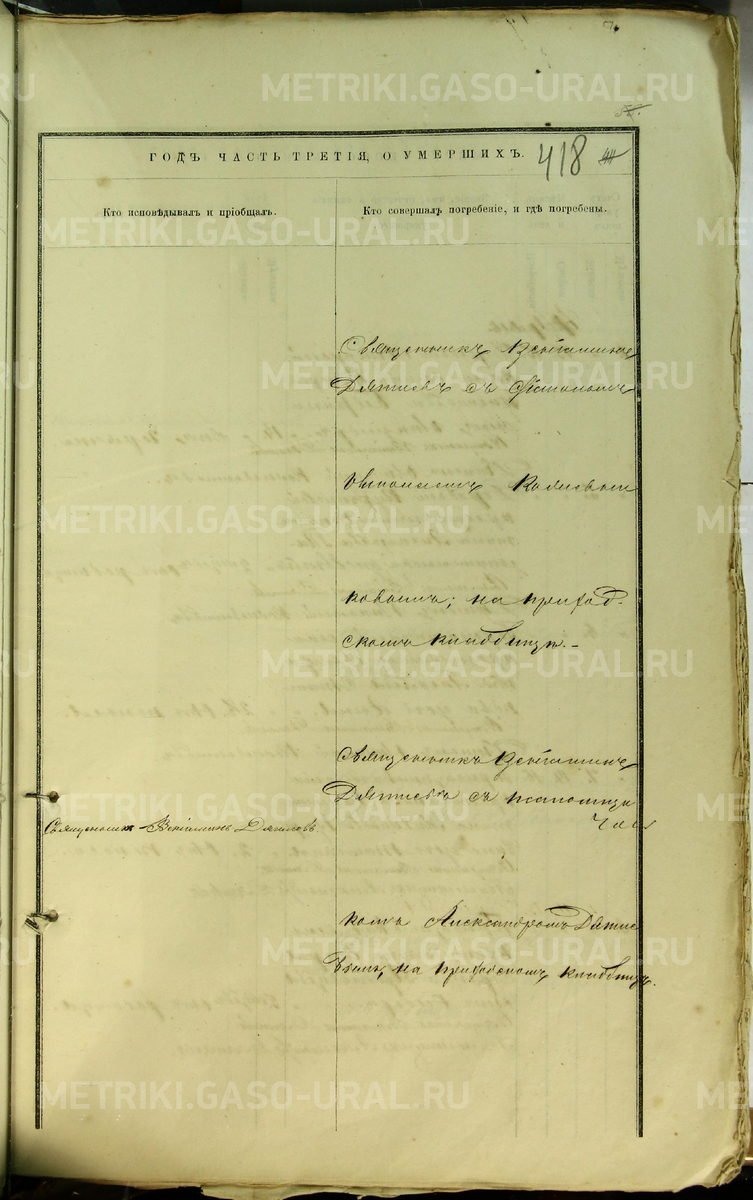 METRIKI.GASO-URAL.RU
ГОДЪ ЧАСТЬ ТРЕТІЯ, О УМЕРШИХЪ. 418
Кто исповѣдывалъ и пріобщалъ.
Кто совершалъ погребеніе, и гдѣ погребены.
Священникъ Веніаминъ
Дягилевъ съ
ковымъ; на приход-
скомъ кладбищѣ.
Священникъ Веніаминъ
Дягилевъ съ псаломщи
Священникъ Веніаминъ Дягилевъ.
комъ Александромъ Дягиле
вымъ, на приходскомъ кладбищѣ.